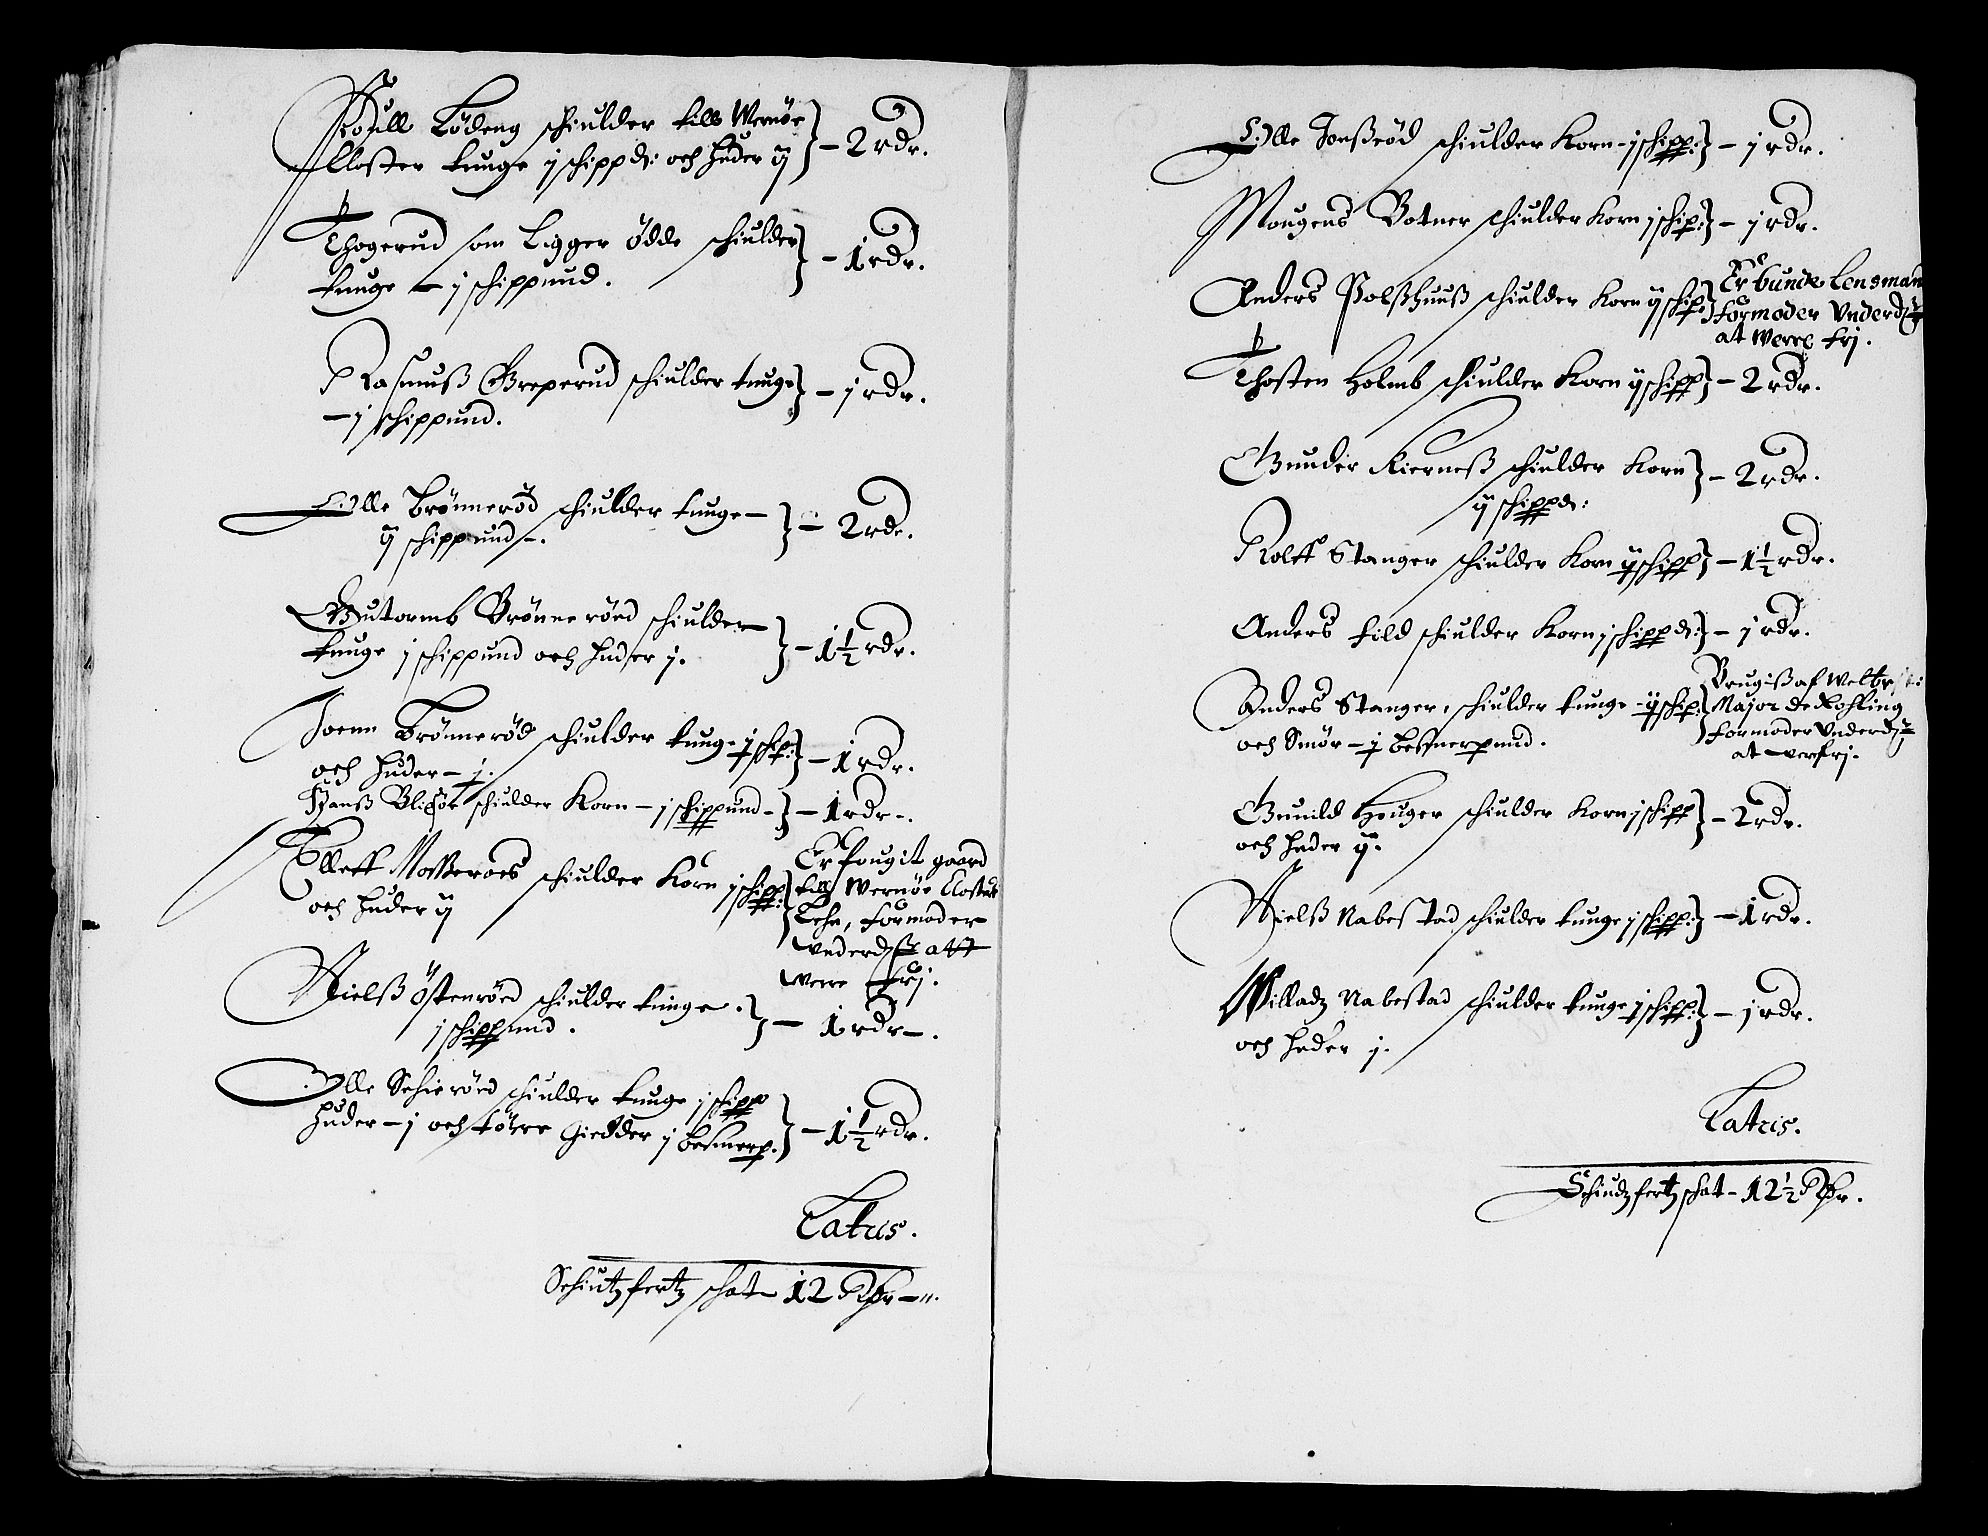 Poull Lödeng schiulder till Wernöe
Closter tunge j schippd: och huder ij } - 2 rdr.
Thogerud som Ligger ödde schiulder
tunge - j schippund. } - 1 rdr.
Rasmuß Greperud schiulder tunge
- j schippund. } - j rdr.
Olle Brönneröd schiulder tunge -
ij schippund -. } - 2 rdr.
Gutormb Brönneröed schiulder
tunge j schippund och huder j. } - 1½ rdr.
Joenn Brönneröd schiulder tunge j schip:
och huder - j. } - 1 rdr.
Hanß Blichör schiulder Korn - j schippund - } - 1 rdr -.
Elleff Mosseroes schiulder Korn j schipp:
och huder ij
Er fougit gaard
till Wernöe Closters
Lehn, formoder
underdst att
were frj.
Nielß Östenröed schiulder tunge.
j schippund. } - 1 rdr -.
Olle Schieröed schiulder tunge j schipp
huder - j och törre Giedder j besmerp. } - 1½ rdr.
Latus.
Schiutzfertz schat - 12 Rdr - ".
Olle Joeßröd schiulder Korn - j schipp: } - j rdr.
Mougens Botner schiulder Korn j schip: } - j rdr.
Anders Polßhuuß schiulder Korn ij schip:
Er bunde Lensmand
formoder Underdst
at werre frj.
Thosten Holmb schiulder Korn ij schipp } - 2 rdr.
Gunder Kierneß schiulder Korn
ij schippd: } - 2 rdr.
Rolff Stanger schiulder Korn ij schipp } - 1½ rdr.
Anders Fild schiulder Korn j schippd: } - j rdr.
Anders Stanger, schiulder tunge - ij schip:
och Smör - j besmerpund.
Brugiß af Welbr:
Major de Rohling
formoder Underdst
at werfrj.
Gunild Houger schiulder Korn j schipp
och huder ij. } - 2 rdr.
Nielß Nabestad schiulder tunge j schipp: } - 1 rdr.
Willadz Nabestad schiulder tunge j schipp:
och huder j. } - j rdr.
Latus.
Schiudzfertz schat - 12½ Rdr.